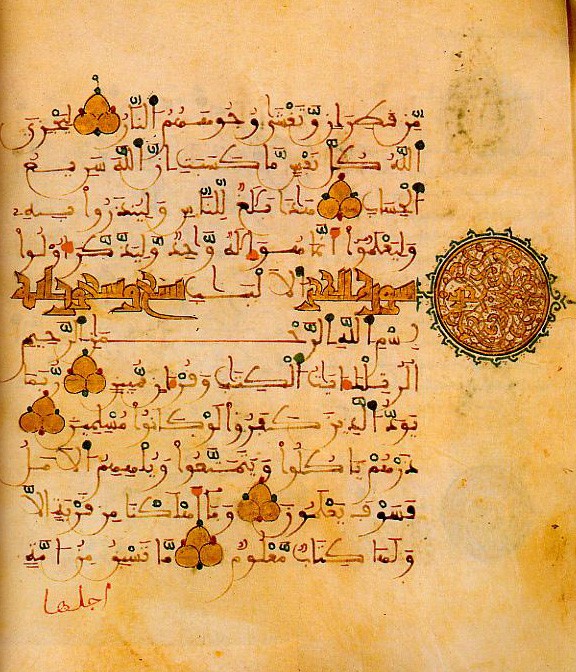 مِّن قَطِرَانٍ وَّتَغْشَىٰ وُجُوهَهُمُ النَّارُ لِيَجْزِيَ
اللَّهُ كُلَّ نَفْسٍ مَّا كَسَبَتْ إِنَّ اللَّهَ سَرِيعُ
الْحِسَابِ هَٰذَا بَلَٰغٌ لِّلنَّاسِ وَلِيُنذَرُوا بِهِ
وَلِيَعْلَمُوا أَنَّمَا هُوَ إِلَٰهٌ وَّاحِدٌ وَلِيَذَّكَّرَ أُولُوا
سورة الحجر الْأَلْبَٰبِ تسع وتسعون اية
بِسْمِ اللَّهِ الرَّحْمَٰنِ الرَّحِيمِ
الٓر تِلْكَ ءَايَٰتُ الْكِتَٰبِ وَقُرْءَانٍ مُّبِينٍ رُّبَمَا
يَوَدُّ الَّذِينَ كَفَرُوا لَوْ كَانُوا مُسْلِمِينَ
ذَرْهُمْ يَأْكُلُوا وَيَتَمَتَّعُوا وَيُلْهِهِمُ الْأَمَلُ
فَسَوْفَ يَعْلَمُونَ وَمَا أَهْلَكْنَا مِن قَرْيَةٍ إِلَّا
وَلَهَا كِتَابٌ مَّعْلُومٌ مَّا تَسْبِقُ مِنْ أُمَّةٍ
اجلها